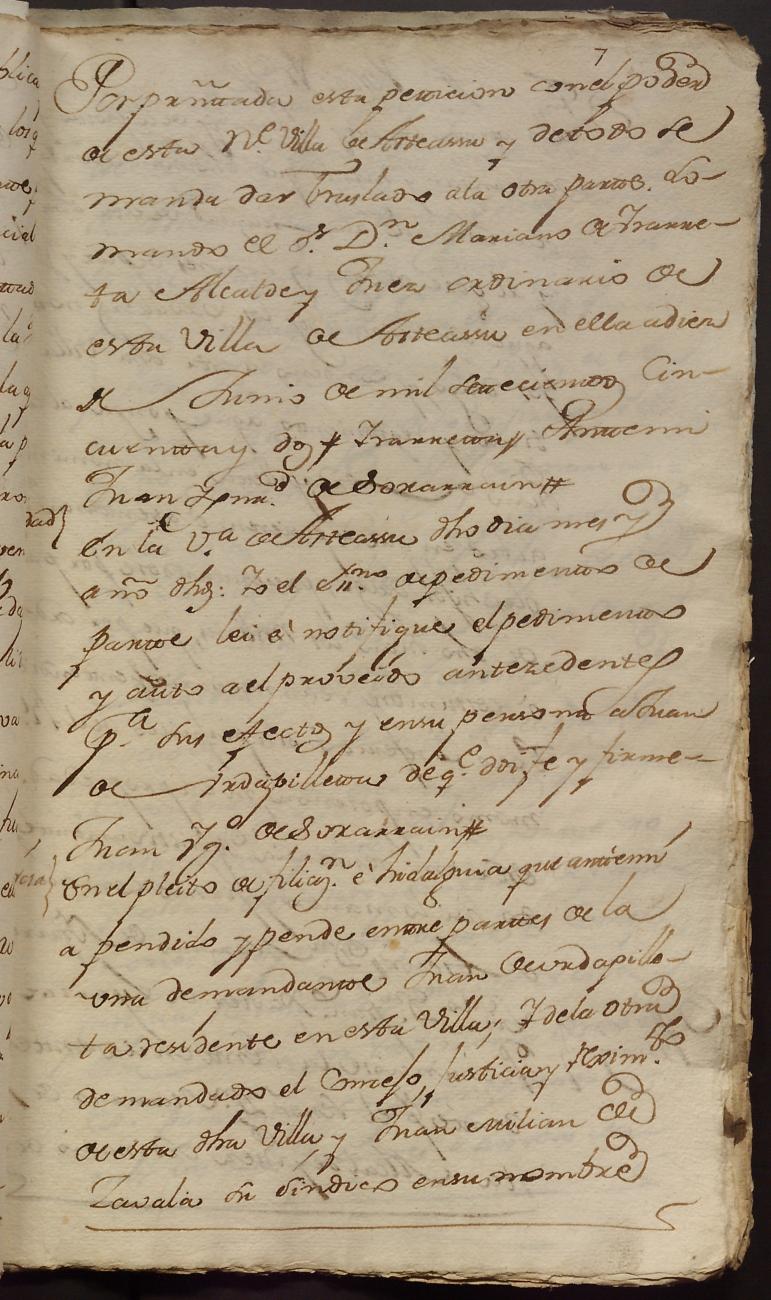 7
Por presñtada esta peticion con el poder
de esta N.e Villa de Asteassu y de todo se
manda dar traslado ala otra parte. Lo
mando el S.r D.n Mariano de Irarre-
ta Alcalde y Juez ordinario de
esta Villa de Asteassu en ella a diez
de Junio de mil setecientos Cin-
cuenta y dos # Irarreta # Antemi
Juan Ign.o de Sorarrain #
En la V.a de Asteassu dho dia mes y
año dhs: Yo el Ss.no de pedimento de
parte lei è notifique el pedimento
y auto a el proveido antezedente
p.a sus efectos y en su persona a Juan
de Urdapilleta de q.e doi fe y firme-
Juan Yg.o de Sorarrain #
En el pleito de filiaz.n è hidalguia que antemi
a pendido y pende entre partes de la
una demandante Juan de Urdapille-
ta residente en esta Villa, y de la otra
demandado el Conzejo, Justicia y Rexim.to
de esta dha Villa, y Juan Milian de
Zavala su sindico en su nombre